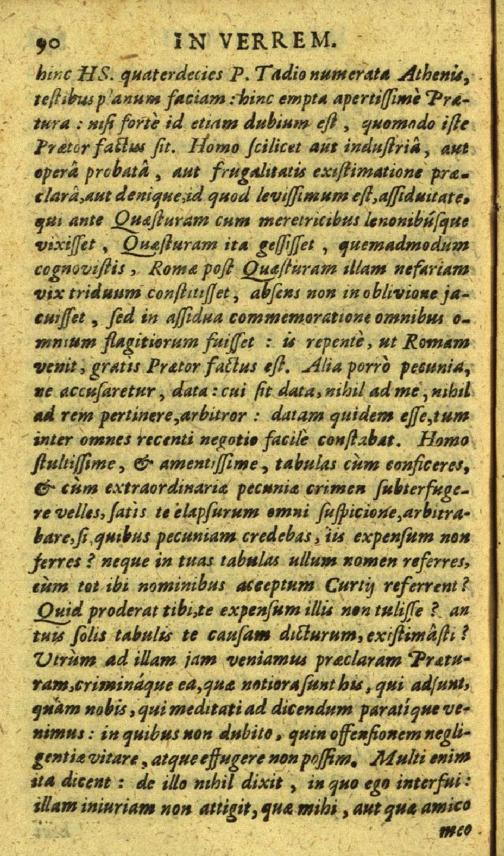 90 IN VERREM.
hinc HS. quaterdecies P. Tadio numerata Athenis,
teſtibus planum faciam : hinc empta apertiſſimè Præ-
tura : niſi fortè id etiam dubium eſt, quomodo iſte
Prætor factus ſit. Homo ſcilicet aut induſtriâ, aut
operâ probatâ, aut frugalitatis exiſtimatione præ-
clarâ, aut denique, id quod leviſſimum eſt, aſſiduitate.
qui ante Quæſturam cum meretricibus lenonibúſque
vixiſſet, Quæſturam ita geſſiſſet, quemadmodum
cognoviſtis, Romæ poſt Quæſturam illam nefariam
vix triduum conſtitiſſet, abſens non in oblivione ja-
cuiſſet, ſed in aſſidua commemoratione omnibus o-
mnium flagitiorum fuiſſet : is repentè, ut Romam
venit, gratis Prætor factus eſt. Alia porrò pecunia,
ne accuſaretur, data : cui ſit data, nihil ad me, nihil
ad rem pertinere, arbitror : datam quidem eſſe, tum
inter omnes recenti negotio facilè conſtabat. Homo
ſtultiſſime, & amentiſſime, tabulas cùm conficeres,
& cùm extraordinariæ pecuniæ crimen ſubterfuge-
re velles, ſatis te elapſurum omni ſuſpicione, arbitra-
bare, ſi, quibus pecuniam credebas, iis expenſum non
ferres ? neque in tuas tabulas ullum nomen referres,
cùm tot ibi nominibus acceptum Curtij referrent ?
Quid proderat tibi, te expenſum illis non tuliſſe ? an
tuis ſolis tabulis te cauſam dicturum, exiſtimâſti ?
Utrùm ad illam jam veniamus præclaram Prætu-
ram, criminá́que ea, quæ notiora ſunt his, qui adſunt,
quàm nobis, qui meditati ad dicendum paratique ve-
nimus : in quibus non dubito, quin offenſionem negli-
gentiæ vitare, atque effugere non poſſim. Multi enim
ita dicent : de illo nihil dixit, in quo ego interfui :
illam iniuriam non attigit, quæ mihi, aut quæ amico
meo